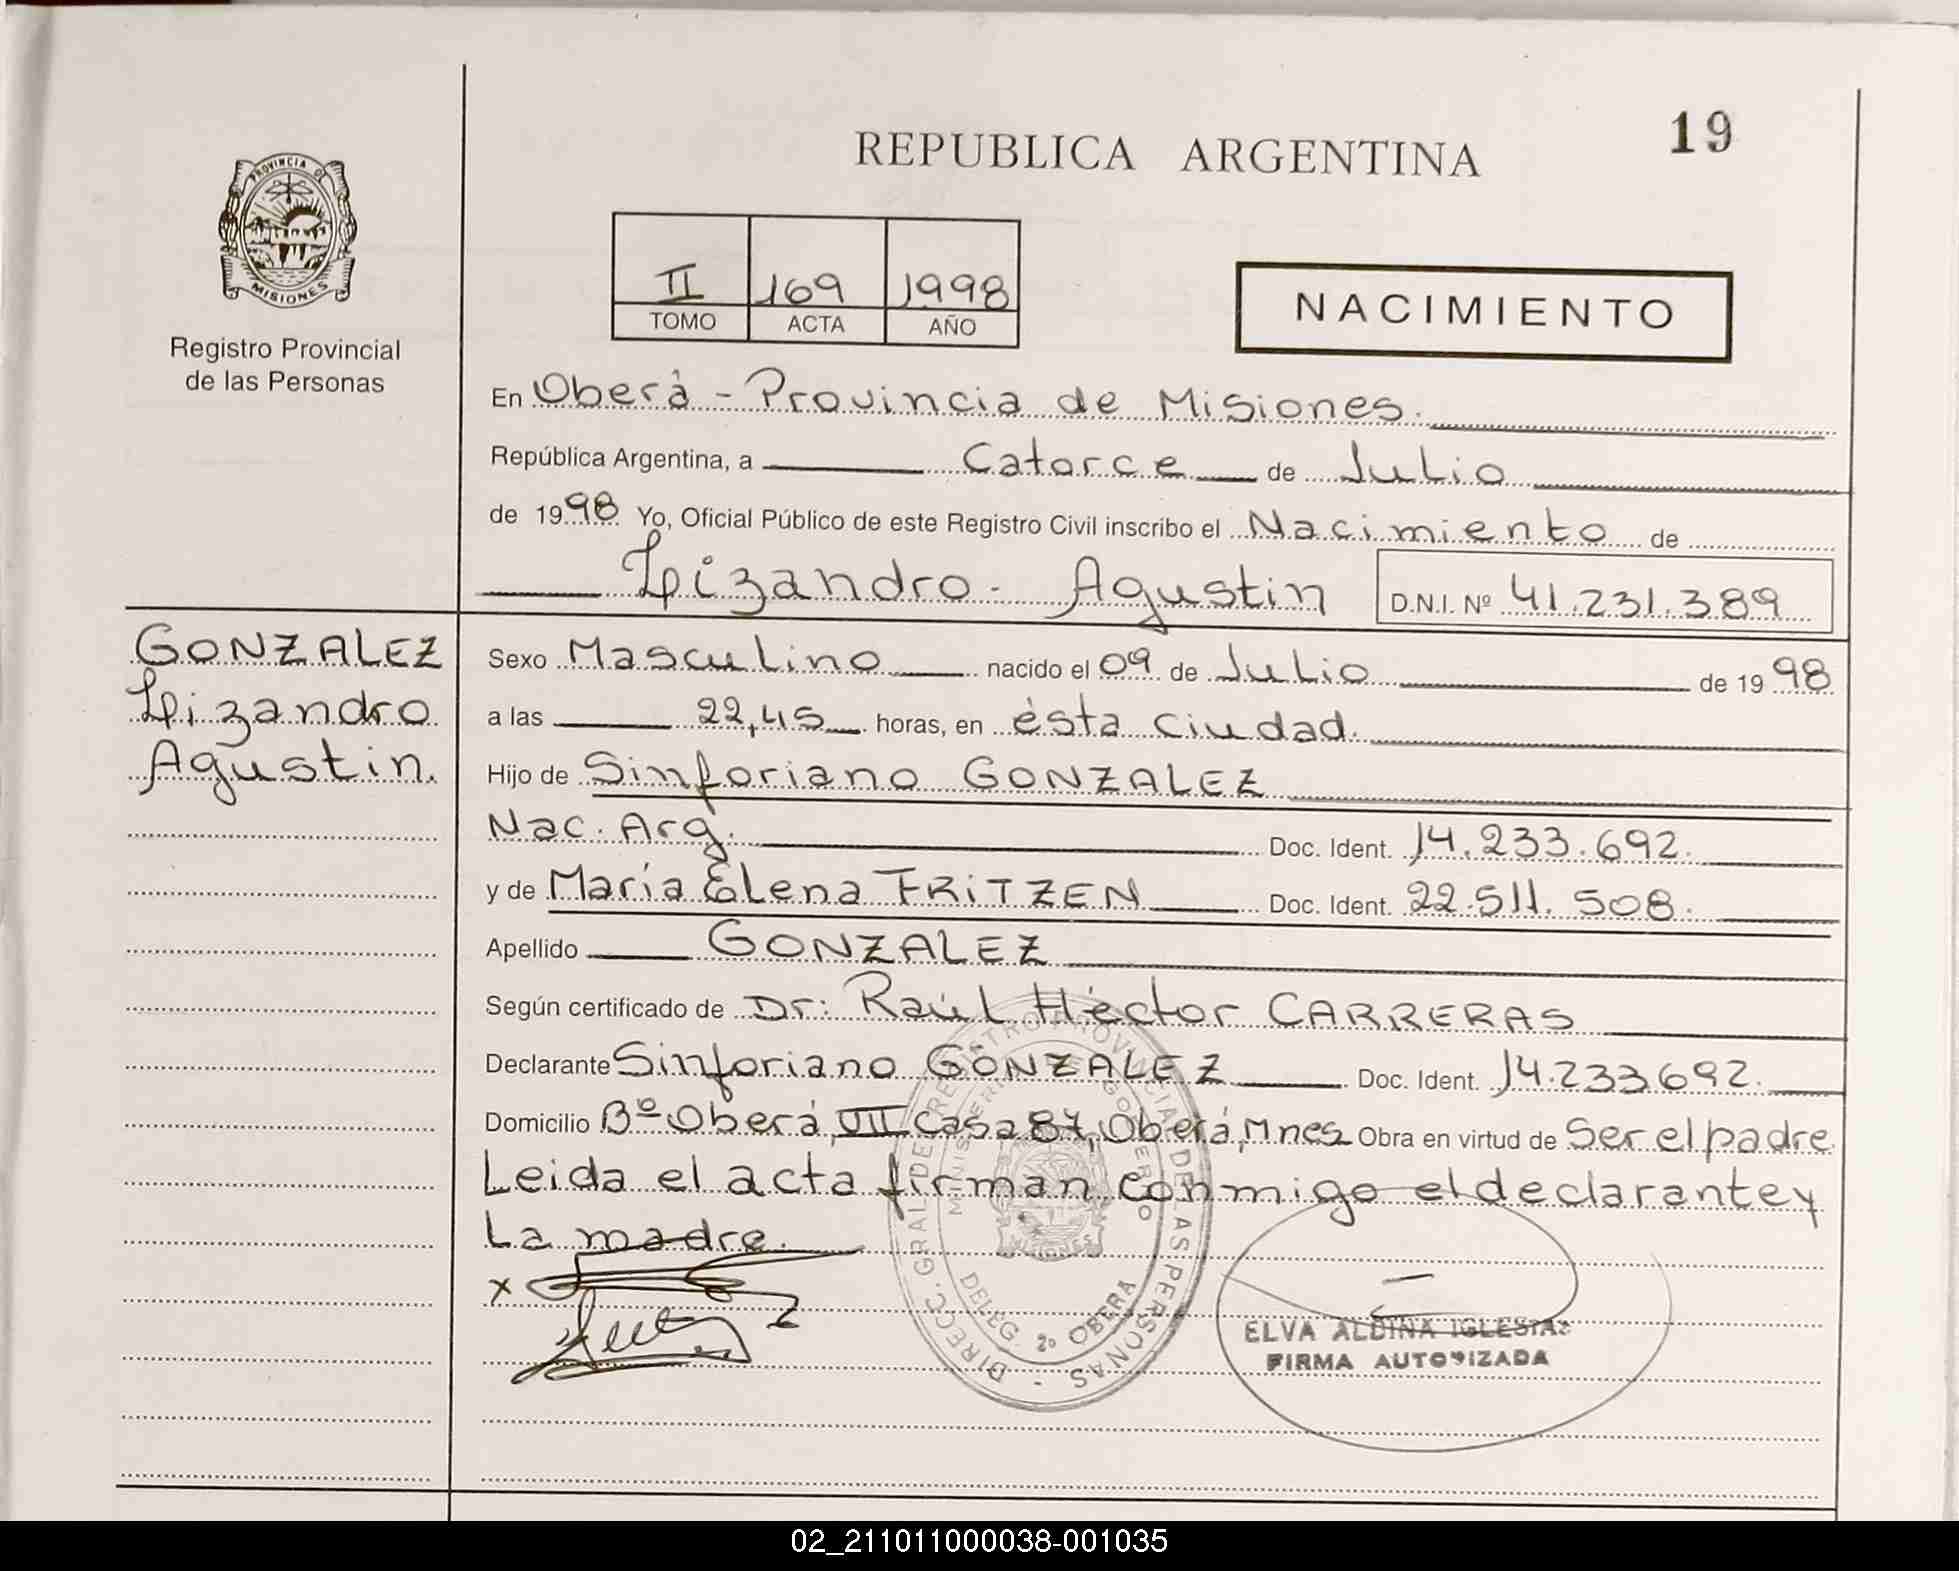 19
REPUBLICA ARGENTINA
PROVINCIA DE
MISIONES
Registro Provincial
de las Personas
II 169 1998
TOMO ACTA AÑO
NACIMIENTO
En Oberá - Provincia de Misiones.
República Argentina, a Catorce de Julio
de 1998 Yo, Oficial Público de este Registro Civil inscribo el Nacimiento de
Lizandro - Agustin D.N.I. Nº 41.231.389
GONZALEZ
Lizandro
Agustin.
Sexo Masculino nacido el 09 de Julio de 1998
a las 22,45 horas, en ésta Ciudad.
Hijo de Sinforiano GONZALEZ
Nac. Arg. Doc. Ident. 14.233.692.
y de María Elena FRITZEN Doc. Ident. 22.511.508.
Apellido GONZALEZ
Según certificado de Dr: Raúl Héctor CARRERAS
Declarante Sinforiano GONZALEZ Doc. Ident. 14.233.692.
Domicilio Bº Oberá, VII Casa 87, Oberá, Mnes Obra en virtud de Ser el padre
Leida el acta firman conmigo el declarante y
La madre.
x
DIRECC. GRAL DE REGISTRO PROVINCIAL DE LAS PERSONAS -
MINISTERIO GOBIERNO
MISIONES
DELEG. 2º OBERA
ELVA ALBINA IGLESIAS
FIRMA AUTORIZADA
02_211011000038-001035